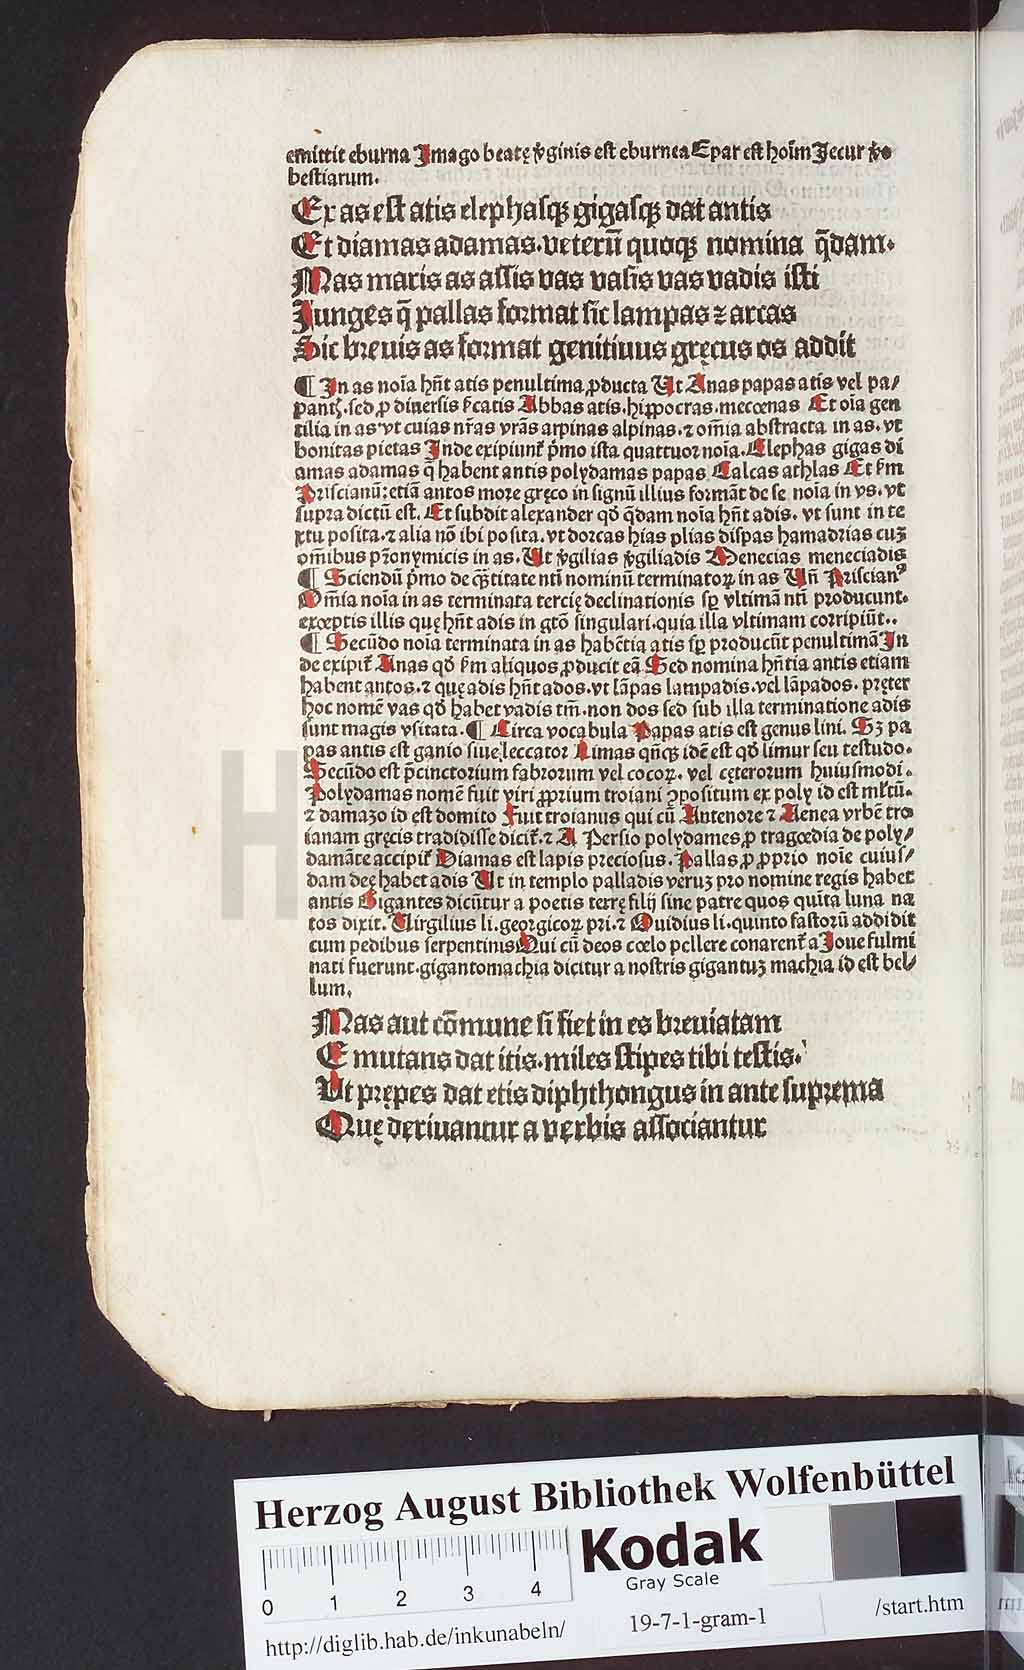 emittit eburna Imago beatę v̓ginis est eburnea Epar est hoīm Iecur v̓o
bestiarum.
Ex as est atis elephasqꝫ gigasqꝫ dat antis
Et diamas adamas. veterū quoqꝫ nomina q̄dam.
Mas maris as assis vas vasis vas vadis isti
Junges q̄ pallas format sic lampas ⁊ arcas
Sic breuis as format genitiuus gręcus os addit
¶ In as noīa hn̄t atis penultima ꝓducta Ut Anas papas atis vel pa/
pantꝭ. sed ꝓ diuersis s̓catis Abbas atis. hippocras. mecœnas Et oīa gen
tilia in as vt cuias nr̄as vrās arpinas alpinas. ⁊ om̄ia abstracta in as. vt
bonitas pietas Inde exipiunt᷑ p̄mo ista quattuor noīa. Elephas gigas di
amas adamas q̄ habent antis polydamas papas Calcas athlas Et s̓m
Priscianū: etiā antos more gręco in signū illius formāt de se noīa in vs. vt
supra dictū est. Et subdit alexander qd̓ q̄dam noīa hn̄t adis. vt sunt in te
xtu posita. ⁊ alia nō ibi posita. vt dorcas hias plias dispas hamadrias cuꝫ
om̄ibus pr̄onymicis in as. Ut v̓gilias v̓giliadis Menecias meneciadis
¶ Sciendū p̄mo de qn̄titate nti nominū terminatoꝝ in as Un̄ Priscianꝰ
Om̄ia noīa in as terminata tercię declinationis sꝑ vltimā nti producunt.
exceptis illis quę hn̄t adis in gtō singulari. quia illa vltimam corripiūt..
¶ Secūdo noīa terminata in as habētia atis sꝑ producūt penultimā In
de exipit᷑ Anas qd̓ s̓m aliquos ꝓducit eā Sed nomina hn̄tia antis etiam
habent antos. ⁊ quę adis hn̄t ados. vt lāpas lampadis. vel lāpados. pręter
hoc nomē vas qd̓ habet vadis tm̄. non dos sed sub illa terminatione adis
sunt magis vsitata. ¶ Circa vocabula Papas atis est genus lini. Sꝫ pa
pas antis est ganio siue leccator Limas qn̄qꝫ idē est qd̓ limur seu testudo.
Secūdo est p̄cinctorium fabrorum vel cocoꝝ. vel cęterorum huiusmodi.
Polydamas nomē fuit viri ꝓprium troiani ꝯpositum ex poly id est ml̓tū.
⁊ damazo id est domito Fuit troianus qui cū Antenore ⁊ Aenea vrbē tro
ianam gręcis tradidisse dicit᷑. ⁊ A Persio polydames ꝓ tragœdia de poly/
damāte accipit᷑ Diamas est lapis preciosus. Pallas ꝓ ꝓprio noīe cuius/
dam deę habet adis Ut in templo palladis veruꝫ pro nomine regis habet
antis Gigantes dicūtur a poetis terrę filij sine patre quos quīta luna na
tos dixit. Uirgilius li. georgicoꝝ pri. ⁊ Ouidius li. quinto fastorū addidit
cum pedibus serpentinis Qui cū deos cœlo pellere conarent᷑ a Ioue fulmi
nati fuerunt. gigantomachia dicitur a nostris gigantuꝫ machia id est bel/
lum.
Mas aut cōmune si fiet in es breuiatam
E mutans dat itis. miles stipes tibi testis.
Ut prępes dat etis diphthongus in ante suprema
Quę deriuantur a verbis associantur
Herzog August Bibliothek Wolfenbüttel
Kodak
Gray Scale
0 1 2 3 4
19-7-1-gram-1
/start.htm
http://diglib.hab.de/inkunabeln/